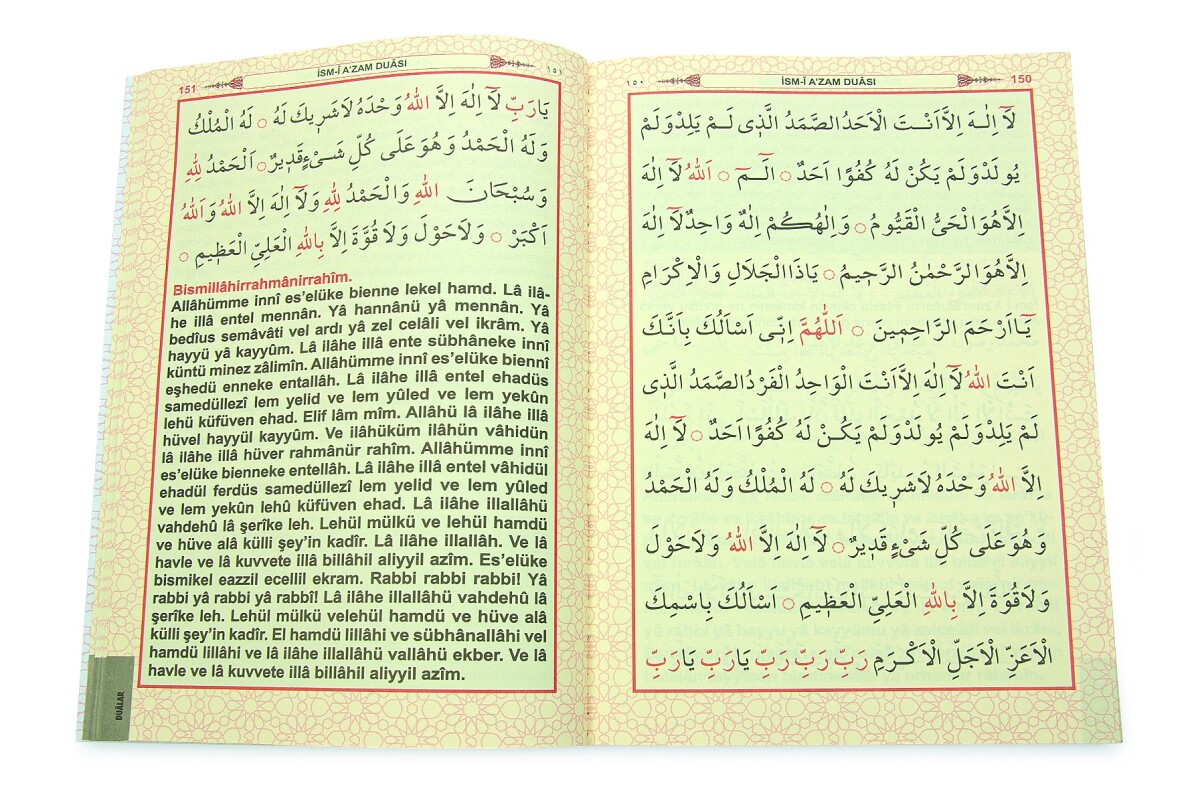 ١٥٠ İSM-İ A'ZAM DUÂSI 150
لَٓا اِلٰهَ اِلَّا اَنْتَ الْاَحَدُ الصَّمَدُ الَّذٖى لَمْ يَلِدْ وَلَمْ
يُولَدْ وَلَمْ يَكُنْ لَهُ كُفُوًا اَحَدٌ ۝ الٓمٓ ۝ اَللّٰهُ لَٓا اِلٰهَ
اِلَّا هُوَ الْحَىُّ الْقَيُّومُ ۝ وَاِلٰهُكُمْ اِلٰهٌ وَاحِدٌ لَٓا اِلٰهَ
اِلَّا هُوَ الرَّحْمٰنُ الرَّحٖيمُ ۝ يَاذَا الْجَلَالِ وَالْاِكْرَامِ
يَٓا اَرْحَمَ الرَّاحِمٖينَ ۝ اَللّٰهُمَّ اِنّٖى اَسْاَلُكَ بِاَنَّكَ
اَنْتَ اللّٰهُ لَٓا اِلٰهَ اِلَّا اَنْتَ الْوَاحِدُ الْفَرْدُ الصَّمَدُ الَّذٖى
لَمْ يَلِدْ وَلَمْ يُولَدْ وَلَمْ يَكُنْ لَهُ كُفُوًا اَحَدٌ ۝ لَٓا اِلٰهَ
اِلَّا اللّٰهُ وَحْدَهُ لَا شَرٖيكَ لَهُ ۝ لَهُ الْمُلْكُ وَلَهُ الْحَمْدُ
وَهُوَ عَلٰى كُلِّ شَىْءٍ قَدٖيرٌ ۝ لَٓا اِلٰهَ اِلَّا اللّٰهُ وَلَا حَوْلَ
وَلَا قُوَّةَ اِلَّا بِاللّٰهِ الْعَلِىِّ الْعَظٖيمِ ۝ اَسْاَلُكَ بِاسْمِكَ
الْاَعَزِّ الْاَجَلِّ الْاَكْرَمِ رَبِّ رَبِّ رَبِّ يَارَبِّ يَارَبِّ يَارَبِّ
151 İSM-İ A'ZAM DUÂSI ١٥١
يَارَبِّ لَٓا اِلٰهَ اِلَّا اللّٰهُ وَحْدَهُ لَا شَرٖيكَ لَهُ ۝ لَهُ الْمُلْكُ
وَلَهُ الْحَمْدُ وَهُوَ عَلٰى كُلِّ شَىْءٍ قَدٖيرٌ ۝ اَلْحَمْدُ لِلّٰهِ
وَسُبْحَانَ اللّٰهِ وَالْحَمْدُ لِلّٰهِ وَلَٓا اِلٰهَ اِلَّا اللّٰهُ وَاللّٰهُ
اَكْبَرْ ۝ وَلَا حَوْلَ وَلَا قُوَّةَ اِلَّا بِاللّٰهِ الْعَلِىِّ الْعَظٖيمِ ۝
Bismillâhirrahmânirrahîm.
Allâhümme innî es'elüke bienne lekel hamd. Lâ ilâ-
he illâ entel mennân. Yâ hannânü yâ mennân. Yâ
bedîus semâvâti vel ardı yâ zel celâli vel ikrâm. Yâ
hayyü yâ kayyûm. Lâ ilâhe illâ ente sübhâneke innî
küntü minez zâlimîn. Allâhümme innî es'elüke biennî
eşhedü enneke entallâh. Lâ ilâhe illâ entel ehadüs
samedüllezî lem yelid ve lem yûled ve lem yekûn
lehü küfüven ehad. Elif lâm mîm. Allâhü lâ ilâhe illâ
hüvel hayyül kayyûm. Ve ilâhüküm ilâhün vâhidün
lâ ilâhe illâ hüver rahmânür rahîm. Allâhümme innî
es'elüke bienneke entellâh. Lâ ilâhe illâ entel vâhidül
ehadül ferdüs samedüllezî lem yelid ve lem yûled
ve lem yekûn lehû küfüven ehad. Lâ ilâhe illallâhü
vahdehû lâ şerîke leh. Lehül mülkü ve lehül hamdü
ve hüve alâ külli şey'in kadîr. Lâ ilâhe illallah. Ve lâ
havle ve lâ kuvvete illâ billâhil aliyyil azîm. Es'elüke
bismikel eazzil ecellil ekram. Rabbi rabbi rabbi! Yâ
rabbi yâ rabbi yâ rabbî! Lâ ilâhe illallâhü vahdehû lâ
şerîke leh. Lehül mülkü velehül hamdü ve hüve alâ
külli şey'in kadîr. El hamdü lillâhi ve sübhânallâhi vel
hamdü lillâhi ve lâ ilâhe illallâhü vallâhü ekber. Ve lâ
havle ve lâ kuvvete illâ billâhil aliyyil azîm.
DUÂLAR